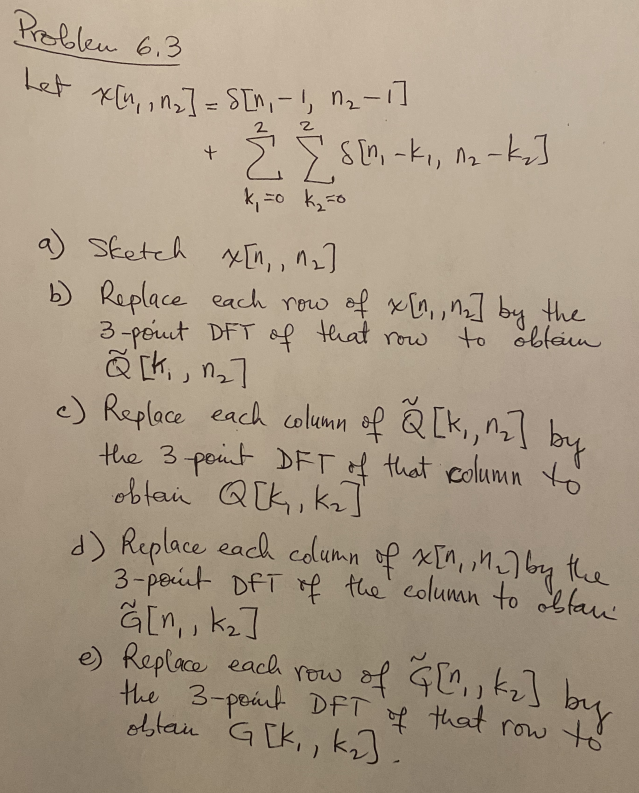 Problem 6.3
Let x[n₁, n₂] = δ[n₁-1, n₂-1]
+ ∑_{k₁=0}^{2} ∑_{k₂=0}^{2} δ[n₁-k₁, n₂-k₂]
a) Sketch x[n₁, n₂]
b) Replace each row of x[n₁, n₂] by the
3-point DFT of that row to obtain
Q̃[k₁, n₂]
c) Replace each column of Q̃[k₁, n₂] by
the 3-point DFT of that column to
obtain Q[k₁, k₂]
d) Replace each column of x[n₁, n₂] by the
3-point DFT of the column to obtain
G̃[n₁, k₂]
e) Replace each row of G̃[n₁, k₂] by
the 3-point DFT of that row to
obtain G[k₁, k₂].